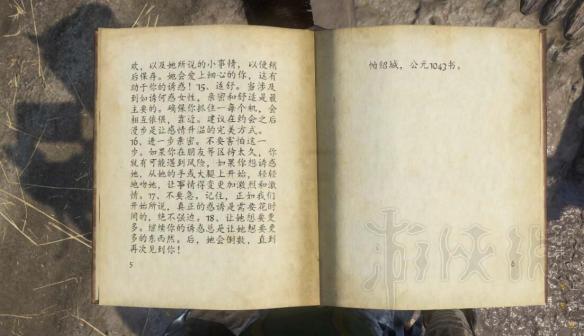 欢，以及她所说的小事情，以便稍
后保存。她会爱上细心的你，这有
助于你的诱惑！15、舒适。当涉及
到如诱何惑女性，亲密和舒适是最
主要的。确保你抓住一每个机，会
相互依偎，靠近。建议在约会之后
漫步是让感情升温的完美方式。
16、进一步亲密。不要害怕这一
步。如果你在朋友等区待太久，你
就有可能遇到风险，如果你想诱惑
她，从她的手或大腿上开始，轻轻
地吻她，让事情得变更加激烈和激
情。17、不要急。记住，正如我们
开始所说，真正的惑诱是需要花时
间的，绝不强迫。18、让她想要更
多。继续你的诱惑总是让她想要更
多的东西然。后，她会倒数，直到
再次见到你！
5
帕绍城，公元1043书。
6
游侠